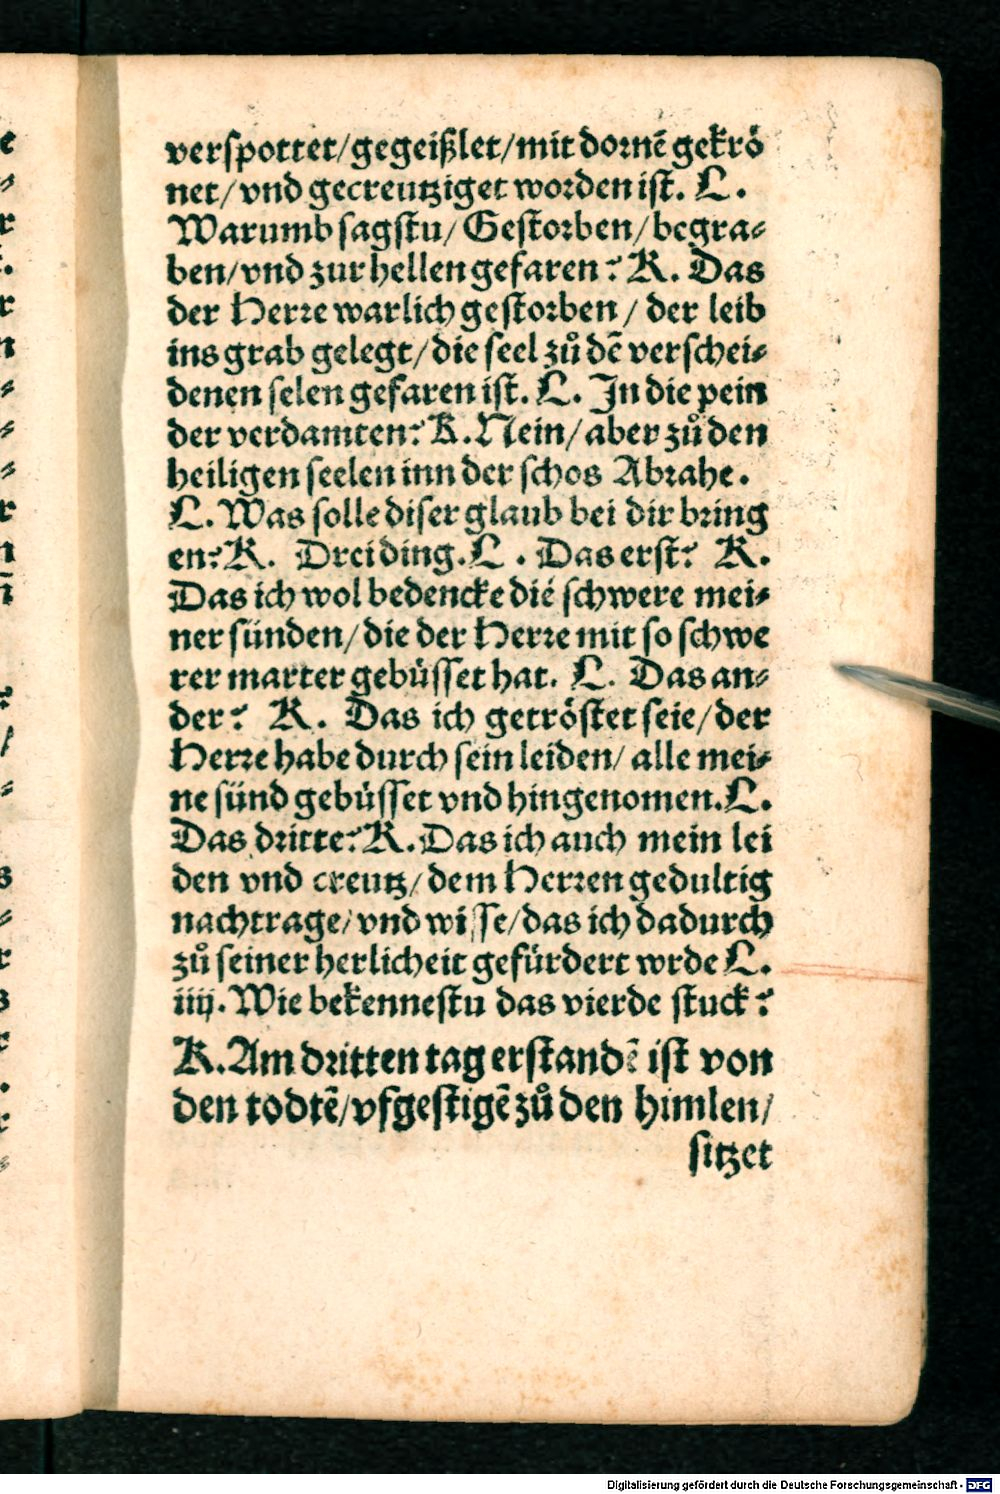 verspottet/gegeißlet/mit dornē gekrö
net/vnd gecreutziget worden ist. L.
Warumb sagstu/ Gestorben/ begra⸗
ben/vnd zur hellen gefaren? K. Das
der Herre warlich gestorben / der leib
ins grab gelegt/die seel zů dē verschei⸗
denen selen gefaren ist. L. In die pein
der verdamten? K. Nein/ aber zů den
heiligen seelen inn der schos Abrahe.
L. Was solle diser glaub bei dir bring
en? K. Drei ding. L. Das erst? K.
Das ich wol bedencke die schwere mei⸗
ner sünden/ die der Herre mit so schwe
rer marter gebüsset hat. L. Das an⸗
der? K. Das ich getröstet seie/ der
Herre habe durch sein leiden/ alle mei⸗
ne sünd gebüsset vnd hingenomen. L.
Das dritte? K. Das ich auch mein lei
den vnd creutz/ dem Herren gedultig
nachtrage/ vnd wisse/ das ich dadurch
zů seiner herlicheit gefürdert wrde L.
iiij. Wie bekennestu das vierde stuck?
K. Am dritten tag erstandē ist von
den todtē/ vfgestigē zů den himlen/
sitzet
Digitalisierung gefördert durch die Deutsche Forschungsgemeinschaft - DFG